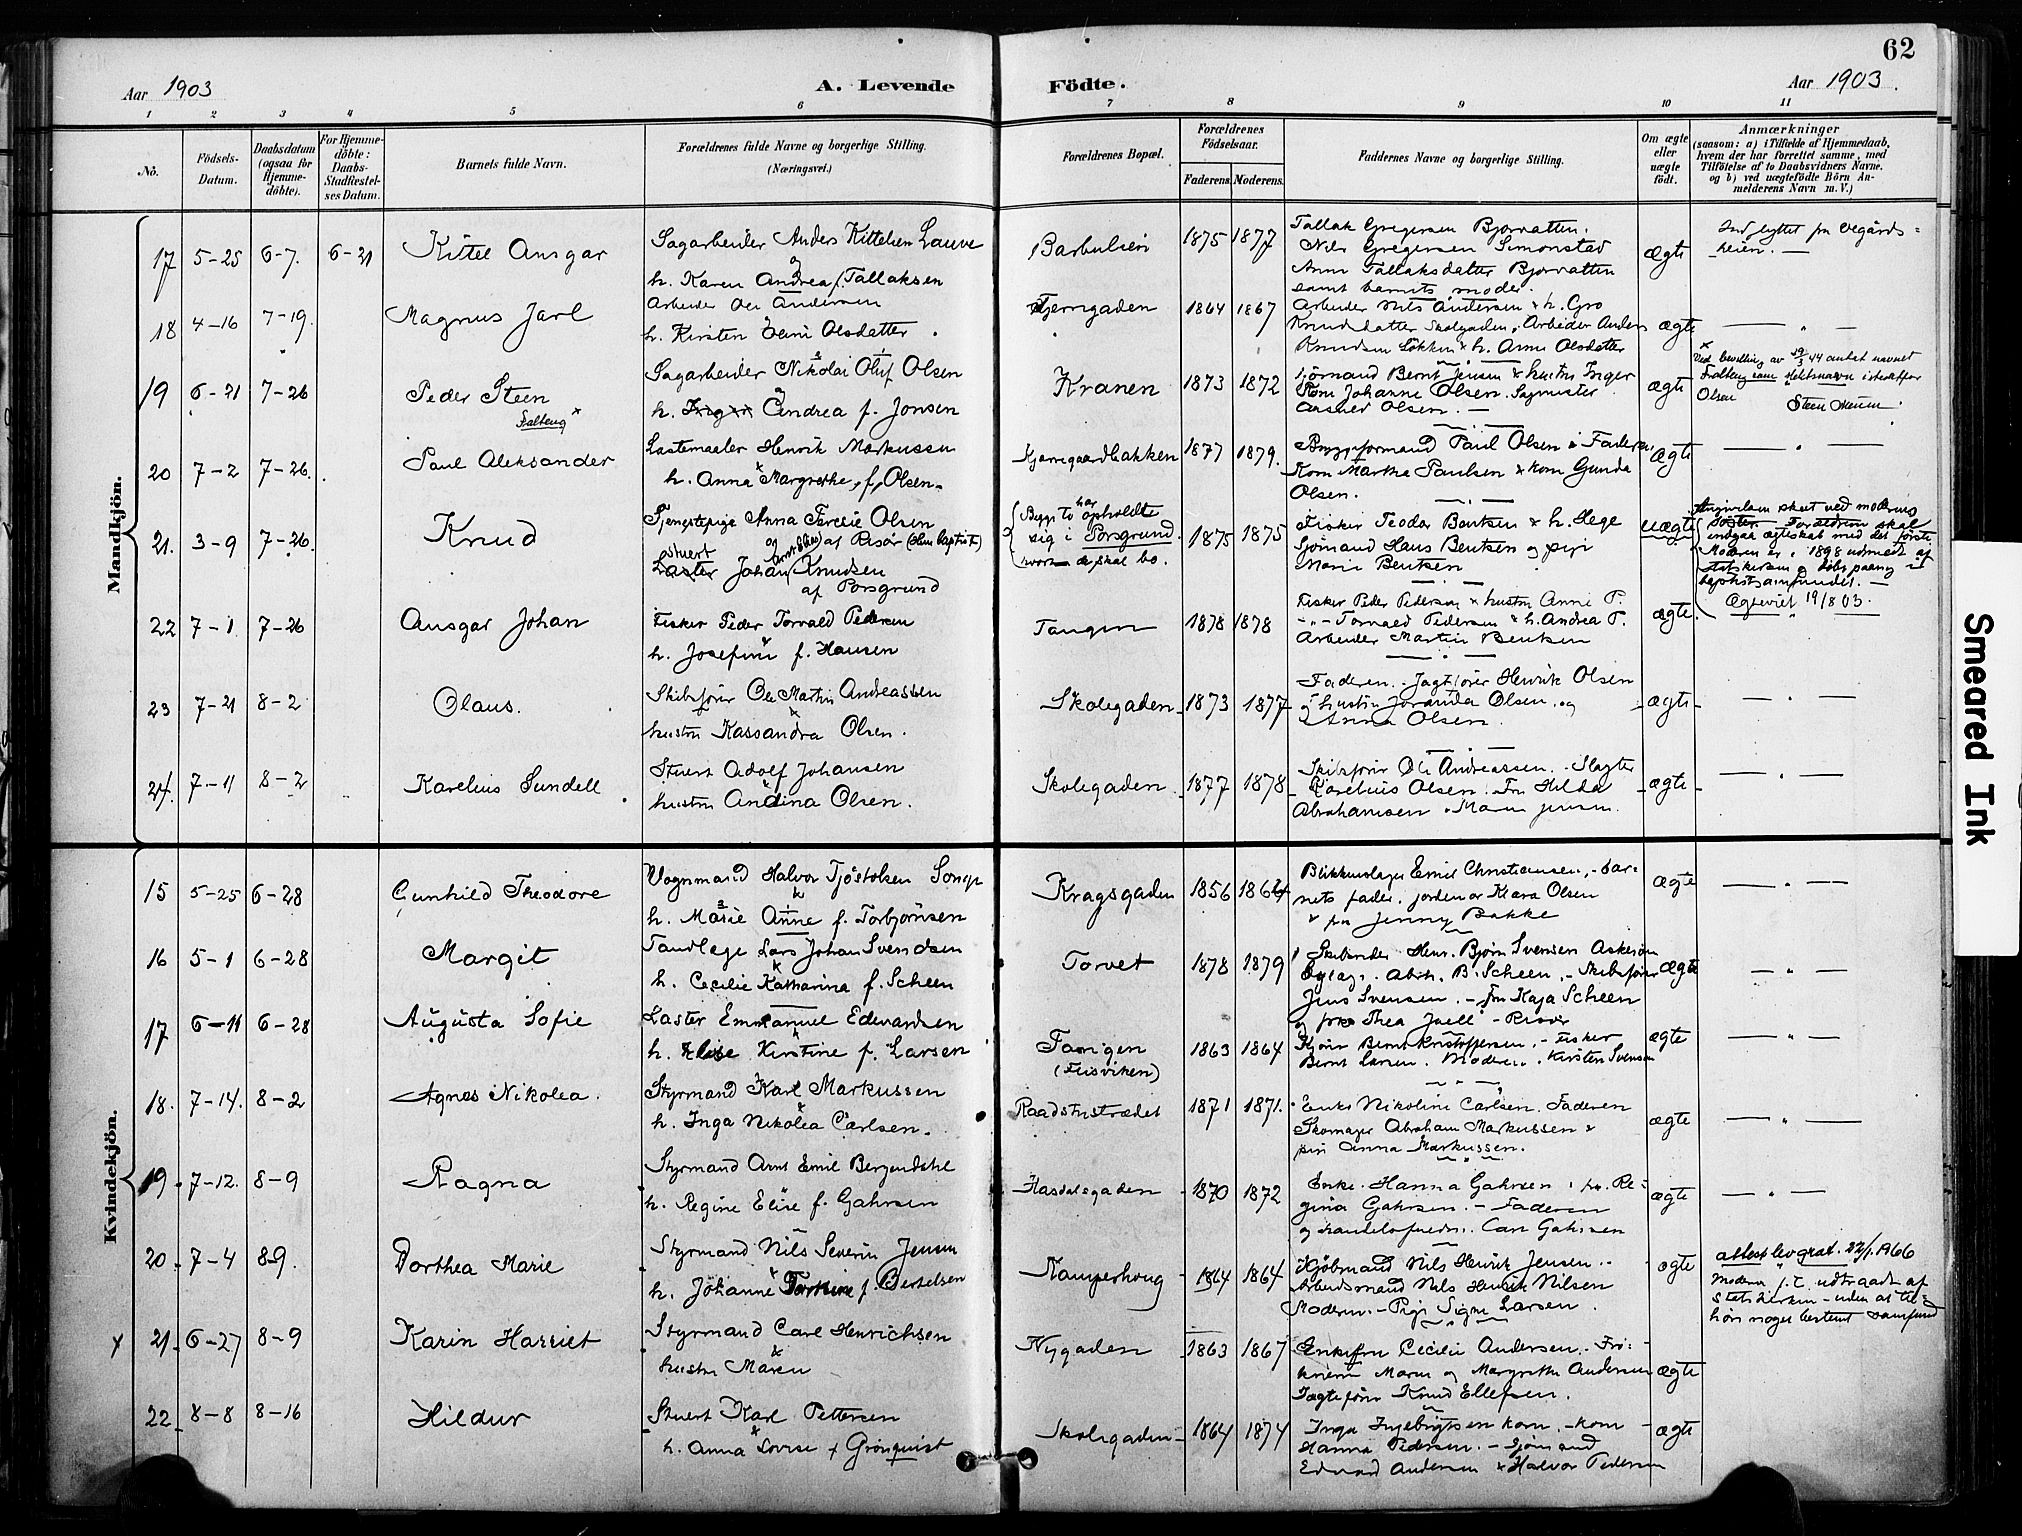 62
Aar 1903
A. Levende
Födte.
Aar 1903.
1 2 3 4 5 6 7 8 9 10 11
No.
Födsels-
Datum.
Daabsdatum
(ogsaa för
Hjemme-
döbte).
For Hjemme-
döbte:
Daabs-
Stadfæstel-
ses Datum.
Barnets fulde Navn.
Forældrenes fulde Navne og borgerlige Stilling.
(Næringsvei.)
Forældrenes Bopæl.
Forældrenes
Födselsaar.
Faderens. Moderens.
Faddernes Navne og borgerlige Stilling.
Om ægte
eller
uægte
födt.
Anmærkninger
(saasom: a) i Tilfælde af Hjemmedaab,
hvem der har forrettet samme, med
Tilföielse af to Daabsvidners Navne,
og b) ved uægtefödte Börn An-
melderens Navn m. V.)
Mandkjön.
17 5-25 6-7. 6-21 Kittel Ansgar
Sagarbeider Anders Kittelsen Lauve
h. Karen Andrea f. Tallaksen
Barbulien 1875 1877
Tallak Gregersen Bjorvatten.
Nils Gregersen Simonstad
Anne Tallaksdatter Bjorvatten
samt barnets moder.
ægte
Indflyttet fra Vegårds=
heien. —
18 4-16 7-19. Magnus Jarl
Arbeider Ole Andersen
h. Kirsten Olsdatter.
Tjerngaden 1864 1867
Arbeider Nils Andersen & h. Gro
Knudsdatter Skolgaden, Arbeider Anders
Knudsen Løkken & h. Anne Olsdatter
ægte
19 6-21 7-26 Peder Steen
Falteng x
Sagarbeider Nikolai Oluf Olsen
h. Andrea f. Jonsen
Kranen 1873 1872
Sjømand Bernt Jensen & hustru Inger
Kone Johanne Olsen. Sagmester
Olsen. —
ægte
Ved bevilling av 44 antat navnet
Falteng som slektsnavn istedetfor
Olsen
20 7-2 7-26. Paul Aleksander
Lastemaaler Henrik Markussen
h. Anna Margrethe, f. Olsen.
Kjerregaardbakken 1877 1879.
Byggeformand Paul Olsen. Faderen
Kone Marthe Paulsen & kone Gunda
Olsen.
ægte
21. 3-9 7-26. Knud
Tjenestepige Anna Olsen
af Risør
stuert
Laster Johan Knudsen
af Porsgrund
Begge to har opholdt
sig i Porsgrund
hvor de skal bo.
1875 1875
Fisker Teodor Bentsen & h. Hege
Sjømand Hans Bentsen og pige
Marie Bentsen
uægte
Angivelsen skeet ved moderens
søster. Forældrene skal
indgaa ægteskab med det første.
Moderen er i 1898 udmeldt af
statskirken og døbt paany i
baptistsamfundet. —
Ægteviet 19/8 03.
22 7-1 7-26 Ansgar Johan
Fisker Peder Torvald Pedersen
h. Josefine f. Hansen
Tangen 1878 1878
Fisker Peder Pedersen & hustru Anne P.
-"- Torvald Pedersen & h. Andrea P.
Arbeider Martin Bentsen
ægte.
23 7-21 8-2 Olaus.
Skibsfører Ole Martin Andreassen
hustru Kassandra Olsen.
Skolegaden 1873 1877
Faderen. Jagtfører Henrik Olsen
hustru Olsen. og
Anna Olsen.
ægte
24. 7-11 8-2 Karelius Sundell.
Stuert Adolf Johansen
hustru Andina Olsen.
Skolegaden. 1877 1878
Skibsfører Ole Andreassen. Slagter
Karelius Olsen. Fru Hilda
Abrahamsen. Maren Jensen.
ægte
Kvindekjön.
15 5-25 6-28 Gunhild Theodore
Vognmand Halvor Tjøstolsen Songe
h. Marie Anne f. Torbjørnsen
Kragsgaden 1856 1864
Blikkenslager Emil Christiansen, - bar-
nets fader, jordemor Klara Olsen
& frk Jenny Bakke
ægte
16 5-1 6-28 Margit
Tandlæge Lars Johan Svendsen
h. Cecilie Katharina f. Scheen
Torvet 1878 1879
Skibsreder Hens. Bjørn Svensen Askerøen
Abrh. B. Scheen. - Skibsfører
Jens Svensen. - Fru Kaja Scheen
og frk. Thea Juell - Risør
ægte
17 6-11 6-28 Augusta Sofie
Laster Emmanuel Edvardsen
h. Elise Kirstine f. Larsen
Tangen
(Flisviken)
1863 1864
Bernt Kristoffersen. - Fisker
Bernt Larsen. Moderen. Kirsten Svensen
ægte
18. 7-14. 8-2 Agnes Nikolea.
Styrmand Karl Markussen
h. Inga Nikolea Carlsen.
Raadstustrædet 1871 1871.
Enke Nikoline Carlsen. Faderen
Skomager Abraham Markussen &
pige Anna Markussen.
ægte
19. 7-12. 8-9 Ragna
Styrmand Arnt Emil Bergendahl
h. Regine Elise f. Gahrsen
Hasdalsgaden 1870 1872
Enke. Hanna Gahrsen. frk. Re-
gina Gahrsen. - Faderen
og Carl Gahrsen
ægte
20. 7-4 8-9. Dorthea Marie
Styrmand Nils Severin Jensen
h. Johanne f. Bertelsen
Kamperhoug 1864 1864
Kjøbmand Nils Henrik Jensen.
Arbeidsmand Nils Henrik Nilsen
Moderen. - Pige Signe Larsen.
ægte
attest lev. grat. 22/1.1966
Moderen f. T. udtraadt af
Statskirken - uden at til-
høre noget bestemt samfund
x 21. 6-27 8-9 Karin Harriet
Styrmand Carl Henrichsen
hustru Maren
Nygaden 1863 1867
Enkefru Cecilie Andersen. Frø-
knerne Maren og Margrethe Andersen
Jagtefører Knud Ellefsen.
ægte
22. 8-8 8-16 Hildur
Stuert Karl Pettersen
h. Anna Lovise f. Grönquist
Skolegaden 1864 1874
Inga Ingebrigtsen kone, - kone
Hanna Pedersen. - Sjømand
Edvard Andersen & Halvor Pedersen
ægte
Smeared Ink